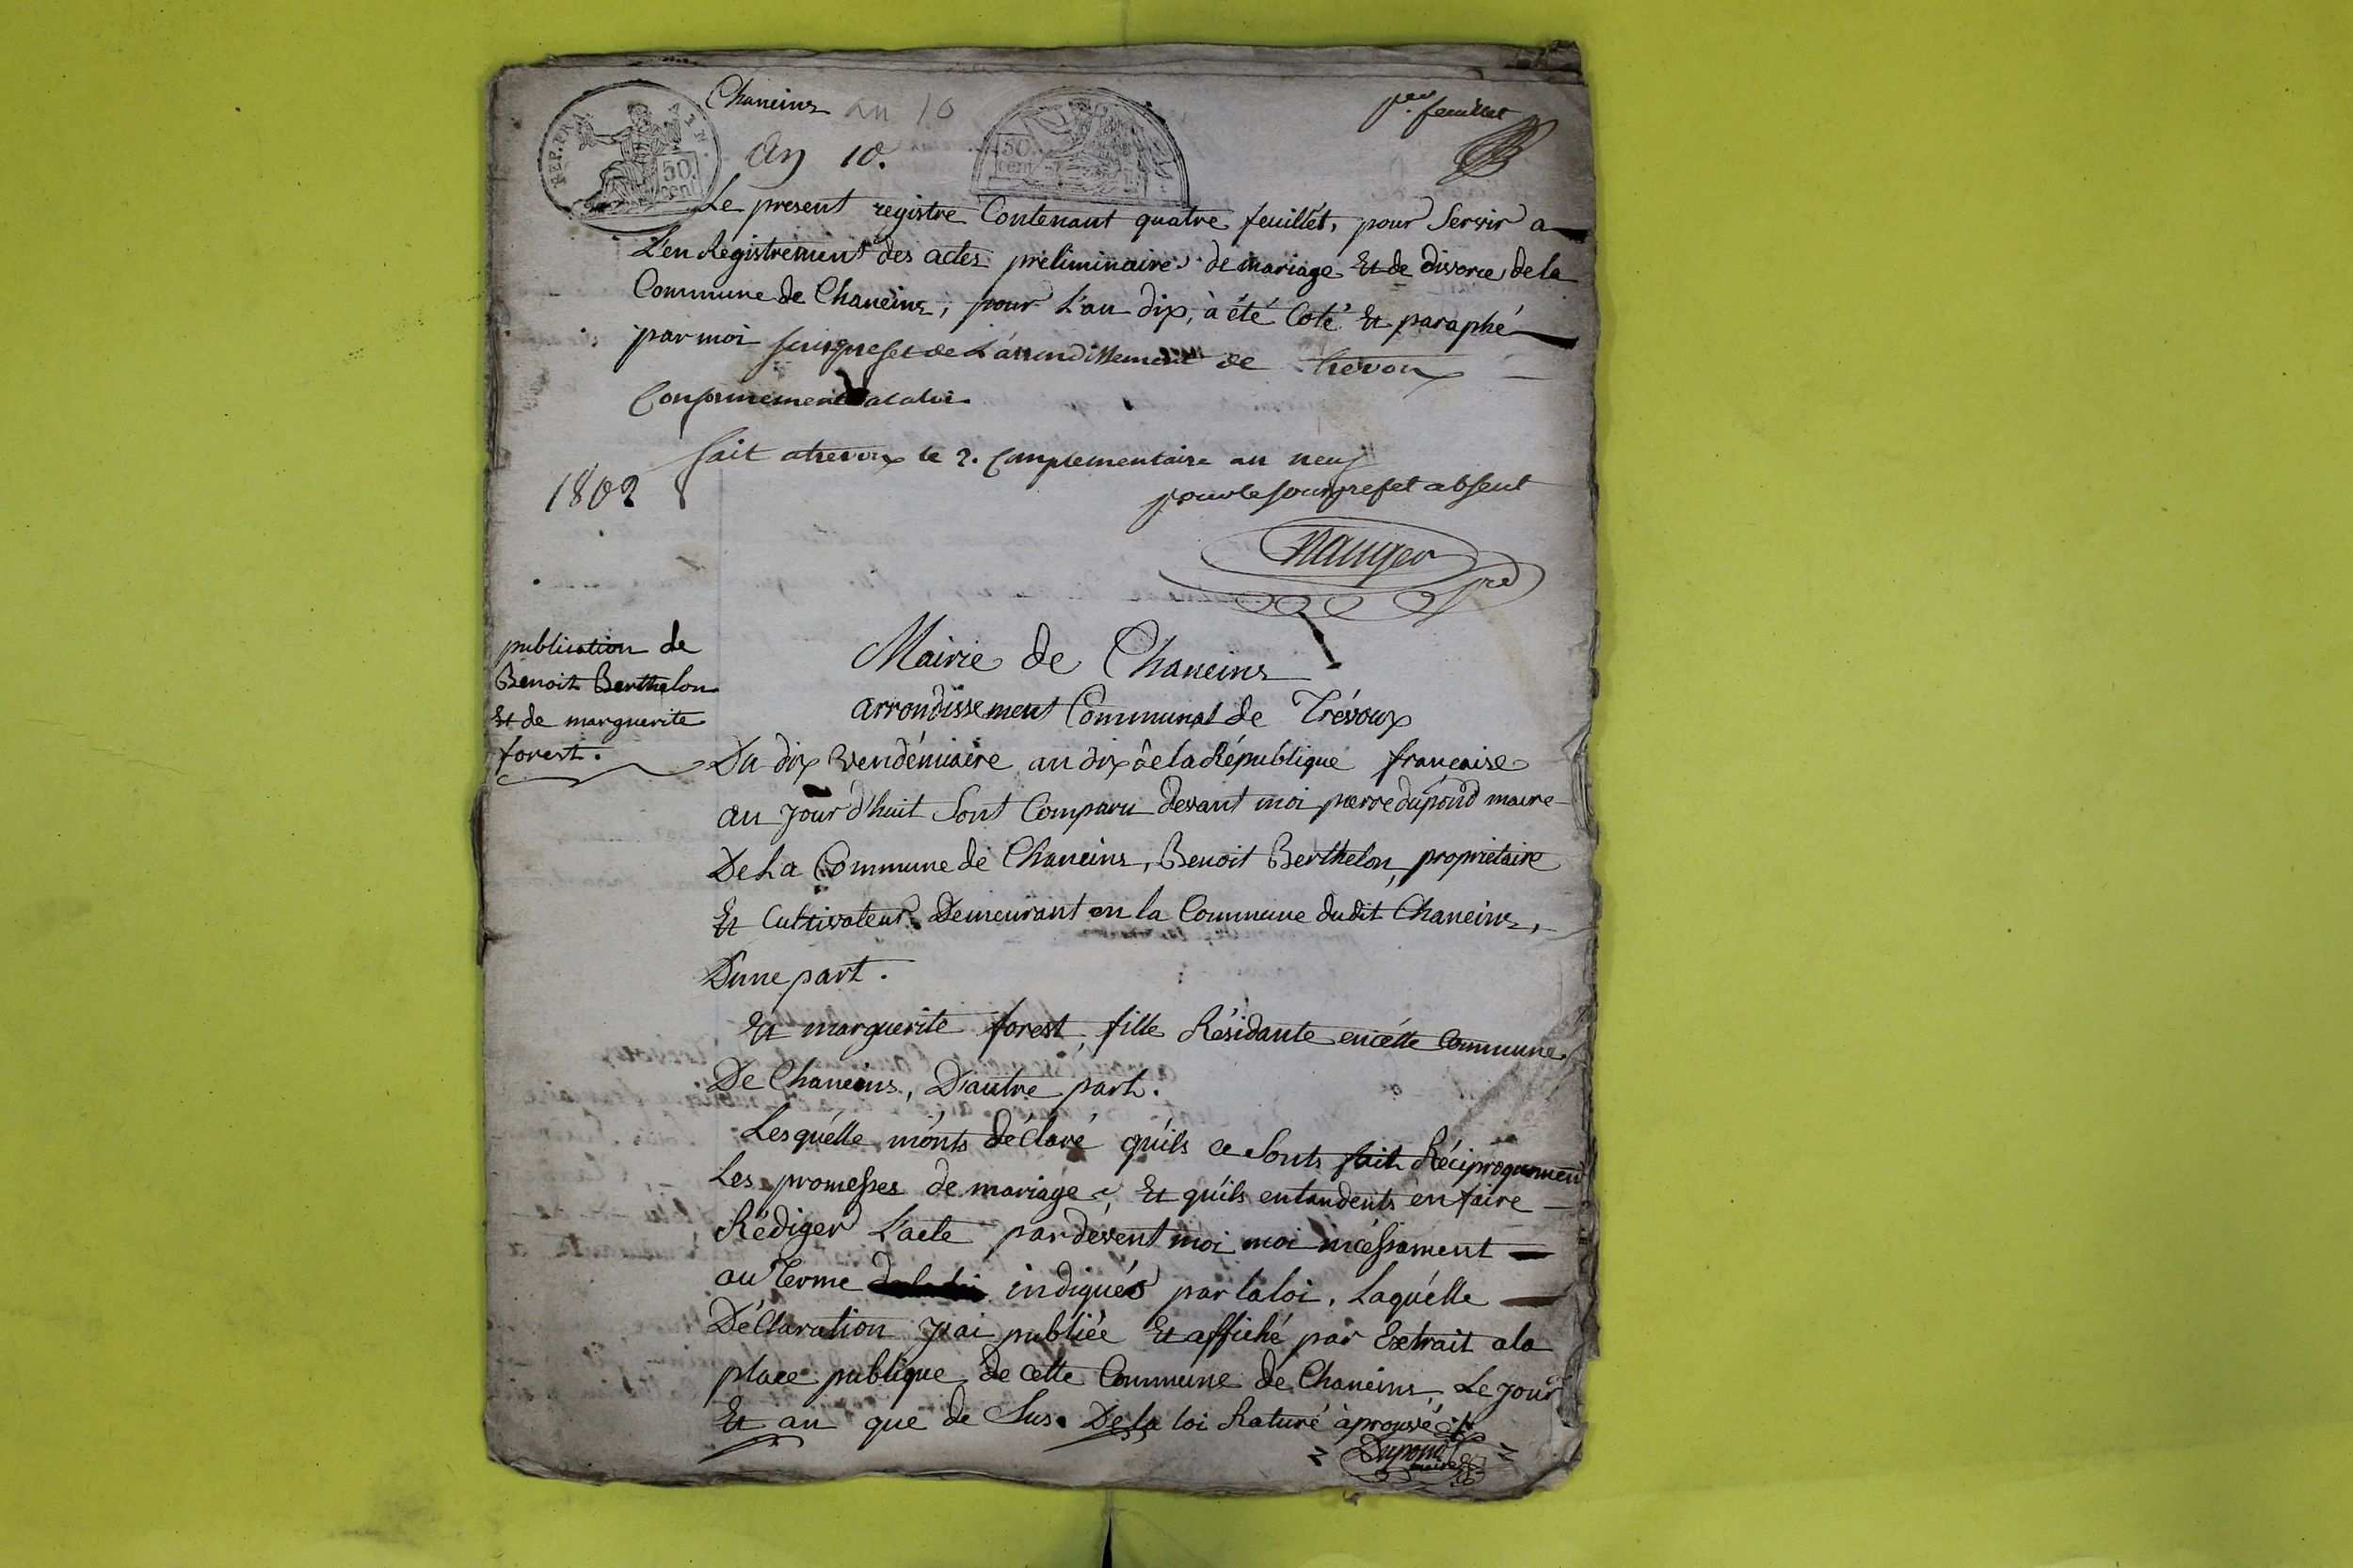 Chaneins an 10
per. feuillet
REP. FRA.
50 cent
50 cent
An 10.
Le present registre Contenant quatre feuillet, pour Servir a
L'en Registrement des actes préliminaire de mariage Et de divorce de la
Commune de Chaneins, pour L'an dix, à été Coté Et paraphé
par moi sousprefet de L'arrondissement de Trevoux
Conformement a la loi
fait a trevoux le 2. Complementaire an neuf
1802
pour le sousprefet absent
publication de
Benoit Berthelon
Et de marguerite
forest.
Mairie de Chaneins
arrondissement Communal de Trévoux
Du dix Vendémiaire an dix de la République francaise
au Jour d'huit Sont Comparu devant moi pierre dupond maire
De La Commune de Chaneins, Benoit Berthelon, propriétaire
Et Cultivateur Demeurant en la Commune dudit Chaneins,
D'une part.
Et marguerite forest, fille Résidante en cétte Commune
De Chaneins, D'autre part.
Lesquélle m'onts déClaré qu'ils ce Sonts fait Réciproquement
Les promesses de mariage, Et qu'ils entandents en faire
Rédiger L'acte par devent moi moi incéssament
au Terme indiqués par la loi, Laquélle
DéClaration J'ai publiée Et affiché par Extrait a la
place publique de cette Commune de Chaneins, Le Jour
Et an que de Sus. De la loi Raturé àprouvé
Dupond
maire